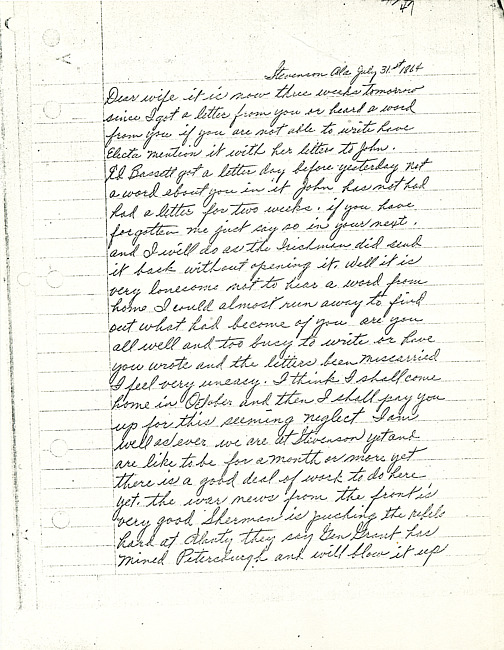 47
Stevenson Ala July 31st 1864
Dear wife it is now three weeks tomorrow
since I got a letter from you or heard a word
from you if you are not able to write have
Electa mention it with her letter to John.
J.D. Bassett got a letter day before yesterday not
a word about you in it John has not had
had a letter for two weeks. if you have
forgotten me just say so in your next.
and I will do as the Irishman did send
it back without opening it. Well it is
very lonesome not to hear a word from
home I could almost run away to find
out what had become of you are you
all well and too busy to write or have
you wrote and the letters been miscarried
I feel very uneasy. I think I shall come
home in October and then I shall pay you
up for this seeming neglect I am
well as ever we are at Stevenson yet and
are like to be for a month or more yet
there is a good deal of work to do here
yet. the war news from the front is
very good Sherman is puching the rebels
hard at they say Gen Grant has
mined Petersburgh and will blow it up